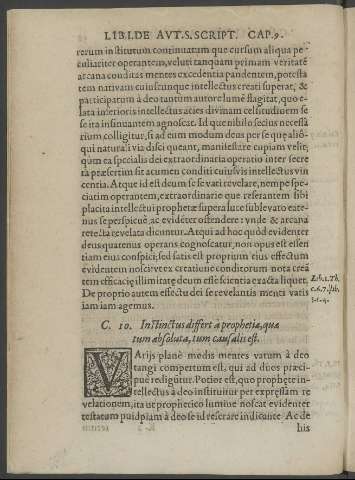 LIB.I.DE AVT.S.SCRIPT. CAP.9.
rerum institutum continuatum que cursum aliqua pe-
culiariter operantem, veluti tanquam primam veritatē
arcana conditas mentes excedentia pandentem, potesta
tem natiuam cuiuscunque intellectus creati superat, &
participatum à deo tantum autore lumē flagitat, quo e-
lata inferioris intellectus acies diuinam celsitudinem se
se ita insinuantem agnoscat. Id que nihilo secius necessa
rium colligitur, si ad eum modum deus per se que, aliôqui
naturali via disci queant, manifestare cupiam velit,
quùm ea specialis dei extraordinaria operatio inter secre
ta præsertim sit acumen conditi cuiusuis intellectus vin
centia. Atque id est deum se se vati reuelare, nempe spe-
ciatim operantem, extraordinario que referantem sibi
placita intellectui prophetæ supera luce subleuato exter-
nus se perspicuè, ac euidēter ostendere: vnde & arcana
retecta reuelata dicuntur. Atqui ad hoc quòd euidenter
deus quatenus operans cognoscatur, non opus est essen
tiam eius conspici, sed satis est proprium eius effectum
euidentem nosci vt ex creatione conditorum nota crea
tem efficacq; illimitatæ deum esse scientia exacta liquet.
De proprio autem effectu dei se reuelantis menti vatis
iam iam agemus.
Lib.1.Th.
c.6.7.
3.1.4.
C. 10. Instinctus differt à prophetia, quæ
tum absoluta, tum causalis est.
VArijs planè modis mentes vatum à deo
tangi compertum est, qui ad duos præci-
puè rediguntur. Potior est, quo prophetę in-
tellectus à deo instituitur per expressam re
uelationem, ita vt prophetico lumine noscat euidenter
testatum quidpiam à deo se id reserare indicante. Ac de
his